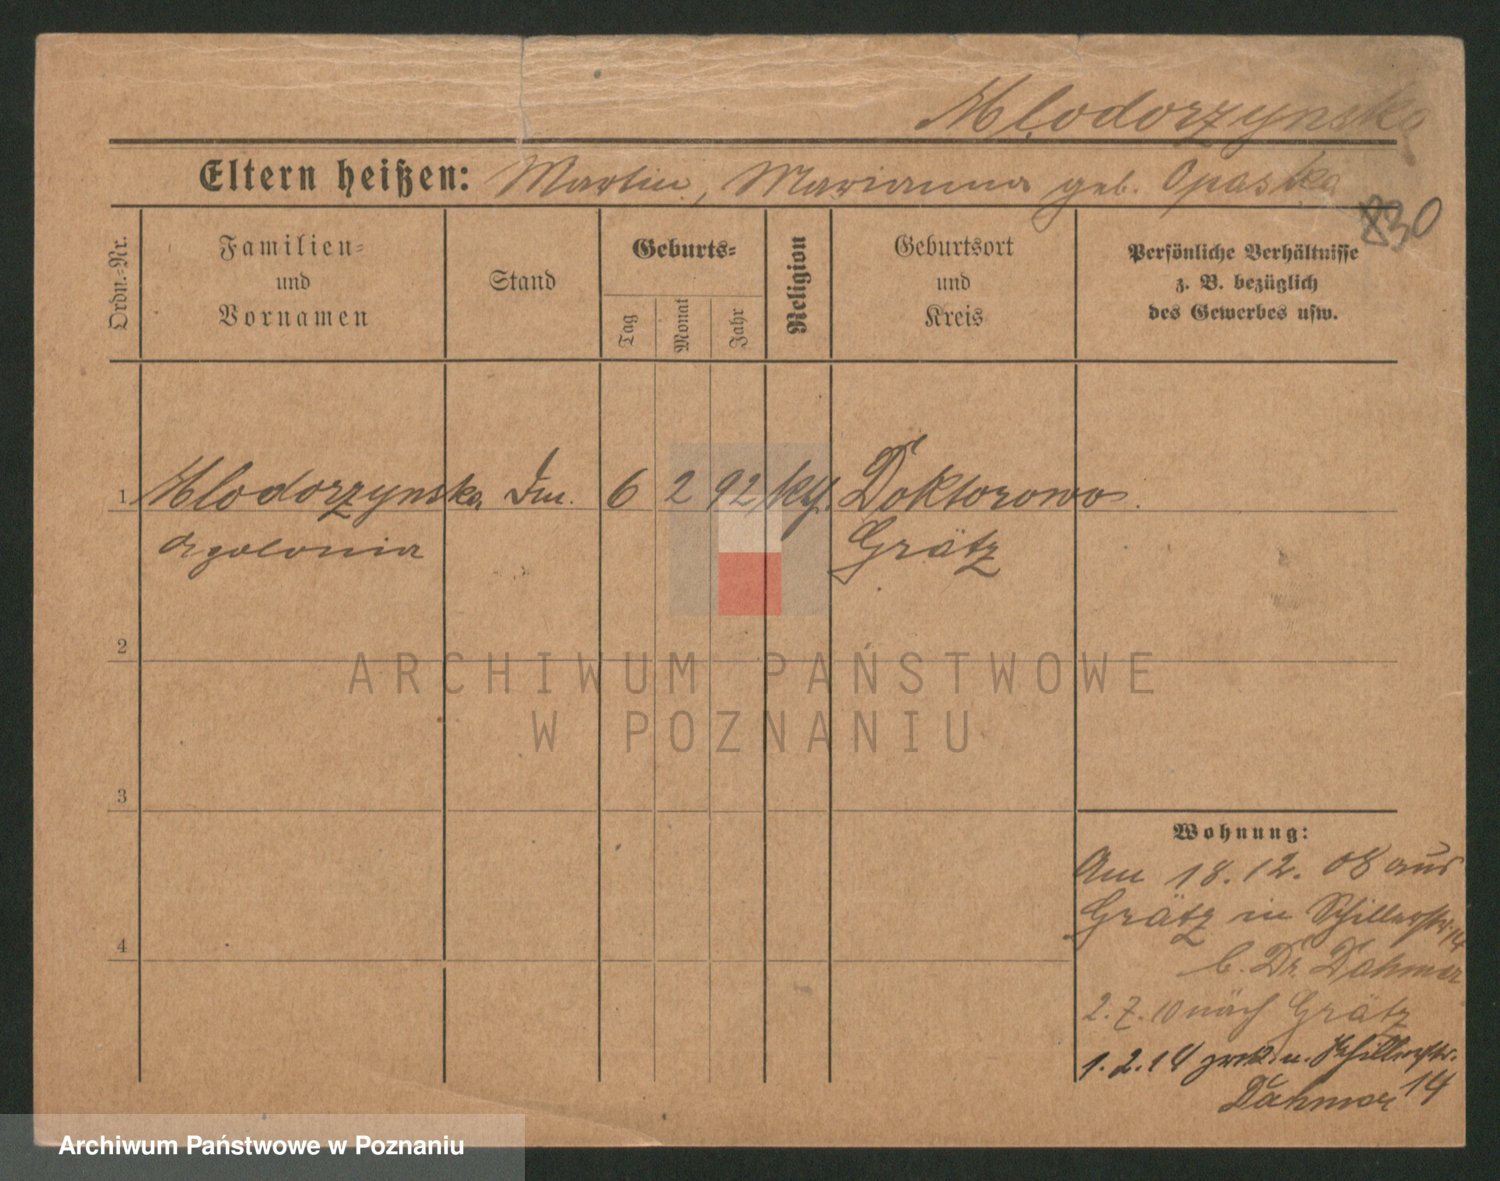 Mlodorzynska
Eltern heißen: Martin, Marianna geb. Opaska
830
Ordn.-Nr.
Familien-
und
Vornamen
Stand
Geburts-
Tag
Monat
Jahr
Religion
Geburtsort
und
Kreis
Persönliche Verhältnisse
z. B. bezüglich
des Gewerbes usw.
1 Mlodorzynska 6 2 92 Doktorowo
Apolonia Grätz
2
ARCHIWUM PAŃSTWOWE
W POZNANIU
3
Wohnung:
Am 18.12.08 aus
Grätz in Schillerstr. 14
b. Dr. Dahmer
4
2.7.10 nach Grätz
1.2.14 Schillerstr.
Dahmer 14
Archiwum Państwowe w Poznaniu